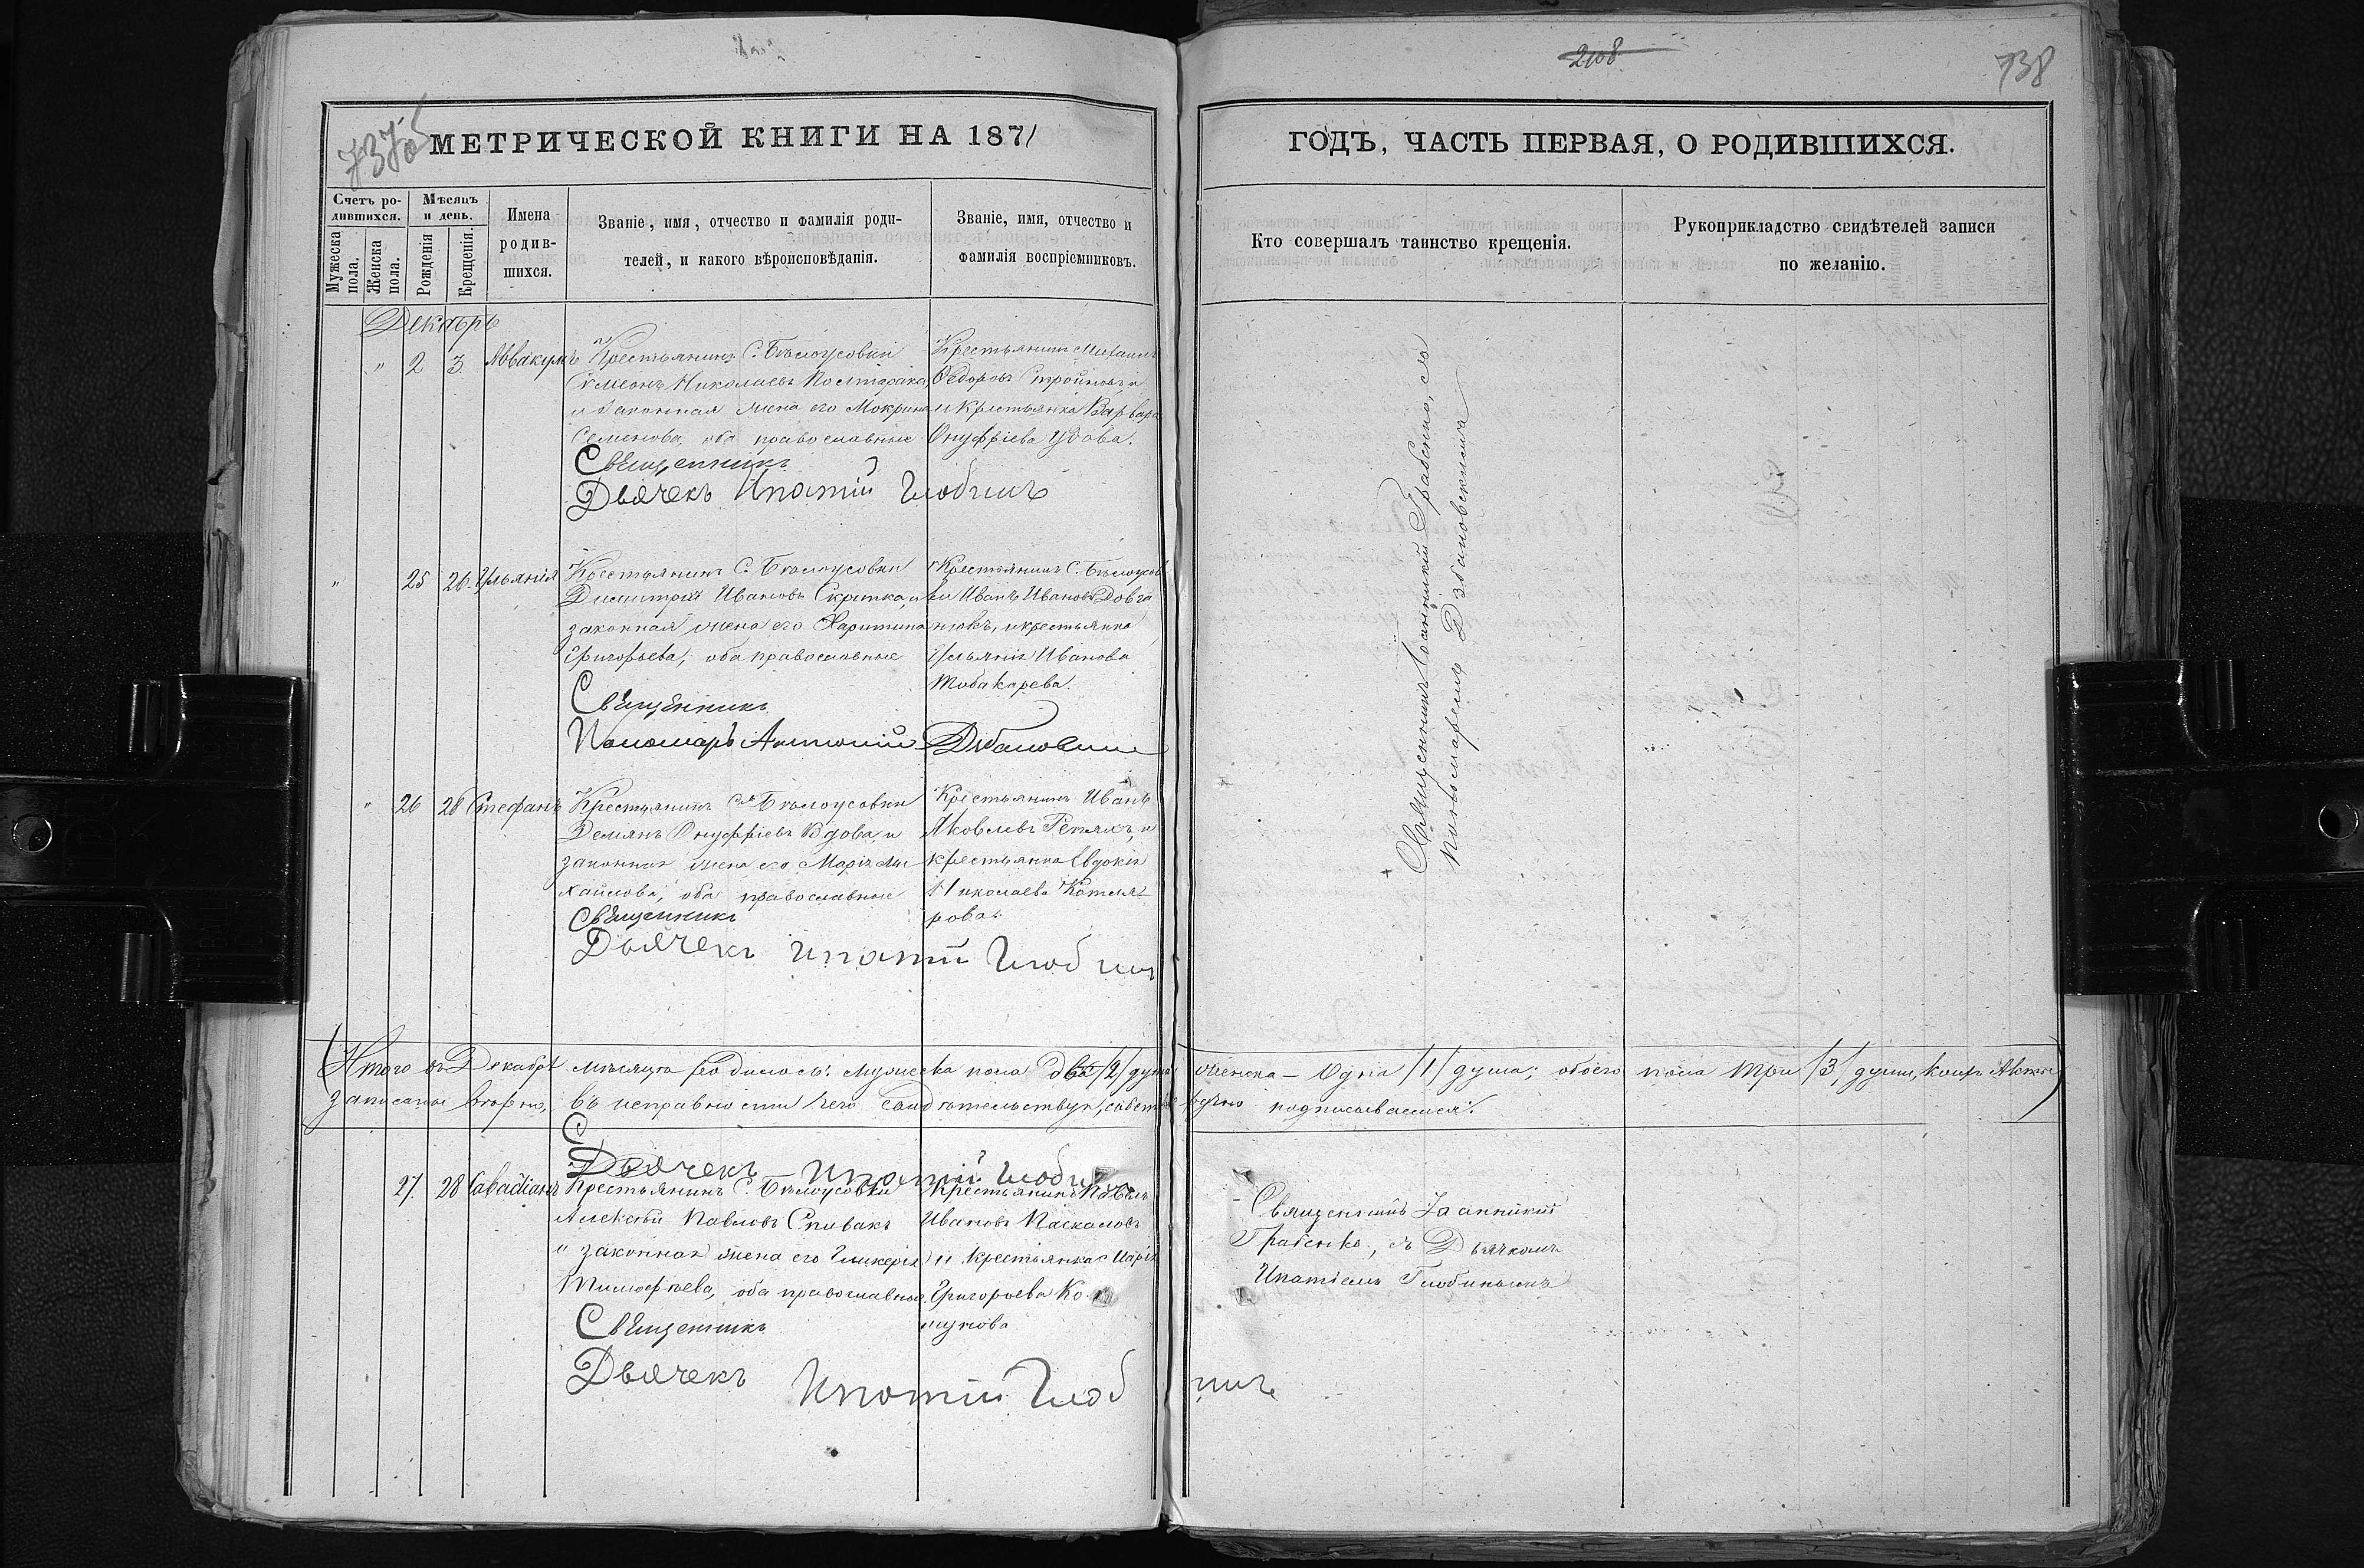 2108
738
737об
МЕТРИЧЕСКОЙ КНИГИ НА 1871
ГОДЪ, ЧАСТЬ ПЕРВАЯ, О РОДИВШИХСЯ.
Счетъ родившихся.
Мужеска пола.
Женска пола.
Мѣсяцъ и день.
Рожденія
Крещенія.
Имена родившихся.
Званіе, имя, отчество и фамилія роди-
телей, и какого вѣроисповѣданія.
Званіе, имя, отчество и
фамилія воспріемниковъ.
Кто совершалъ таинство крещенія.
Рукоприкладство свидѣтелей записи
по желанію.
Декабрь
" 2 3 Аввакумъ
Крестьянинъ С. Бѣлоусовки
Симеонъ Николаевъ
и законная жена его Мокрина
Семенова, оба православные
Крестьянинъ Михаилъ
Федоровъ Стройновъ и
и Крестьянка Варвара
Онуфріева Удова.
Священникъ
Дьячекъ Ипатій Глобинъ
" 25 26. Ульянія
Крестьянинъ С. Бѣлоусовки
Димитрій Ивановъ Скрипка, и
законная жена его Харитина
Григорьева, оба православные
Крестьянинъ С. Бѣлоусов
ки Иванъ Ивановъ Довга
нюкъ, и крестьянка
Ульянія Иванова
Табакарева.
Священникъ
Пономарь Антоній Дзбановскій
" 26 28 Стефанъ
Крестьянинъ С. Бѣлоусовки
Демянъ Онуфріевъ Вдова и
законная жена его Марія Ми
хайлова, оба православные
Крестьянинъ Иванъ
Яковлевъ Репяхъ, и
крестьянка Евдокія
Николаева Котля
рова.
Священникъ
Дьячекъ Ипатій Глобинъ
Священникъ Іоанникій Грабенко, съ
пономаремъ Дзбановскимъ
Итого въ Декабрѣ мѣсяцѣ родилось: мужеска пола двѣ /2/ души женска – Одна /1/ душа; обоего пола три /3/ души, коихъ Акты
записаны вѣрно, въ исправности чего свидѣтельствуя, собственноручно подписываемся:
Дьячекъ Ипатій Глобинъ
27. 28 Савадіанъ
Крестьянинъ С. Бѣлоусовки
Алексѣй Павловъ Спивакъ
и законная жена его Гликерія
Тимофѣева, оба православные.
Крестьянинъ Павелъ
Ивановъ Паскаловъ
и крестьянка Марія
Григорьева
Священникъ Іоанникій
Грабенко, съ Дьячкомъ
Ипатіемъ Глобинымъ
Священникъ
Дьячекъ Ипатій Глобинъ